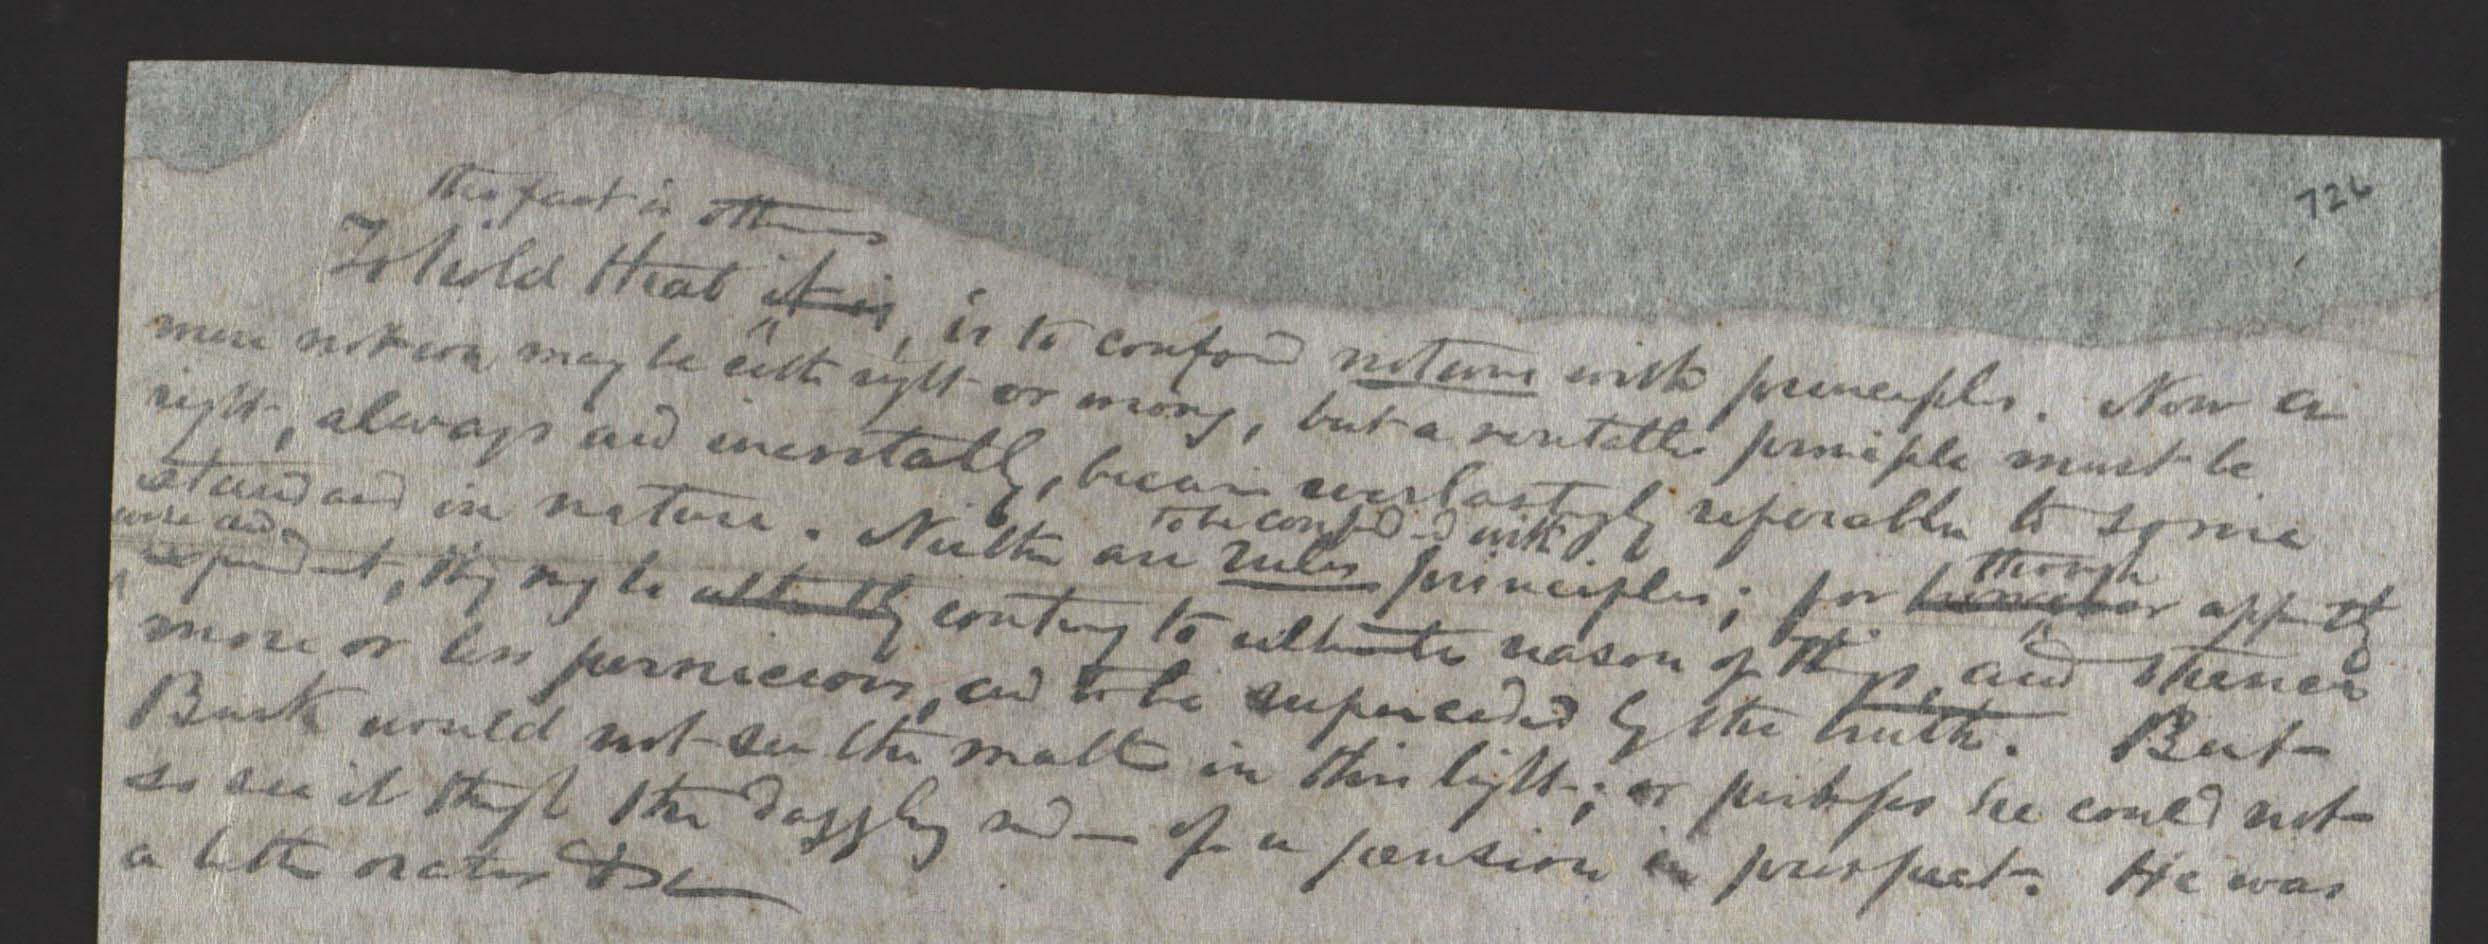 726
the fact is otherwise
To hold that it is, is to confound notions with principles. Now a
mere notion may be either right or wrong, but a veritable principle must be
right, always and inevitably, because everlastingly referable to some
to be confounded with
standard in nature. Neither are rules principles; for however apparently
though
wise and
expedient, they may be contrary to ultimate reason of things, and thence
more or less pernicious, and to be superceded by the truth. But
Burke would not see the matter in this light; or perhaps he could not
so see it through the dazzling of a pension in prospect. He was
a better orator